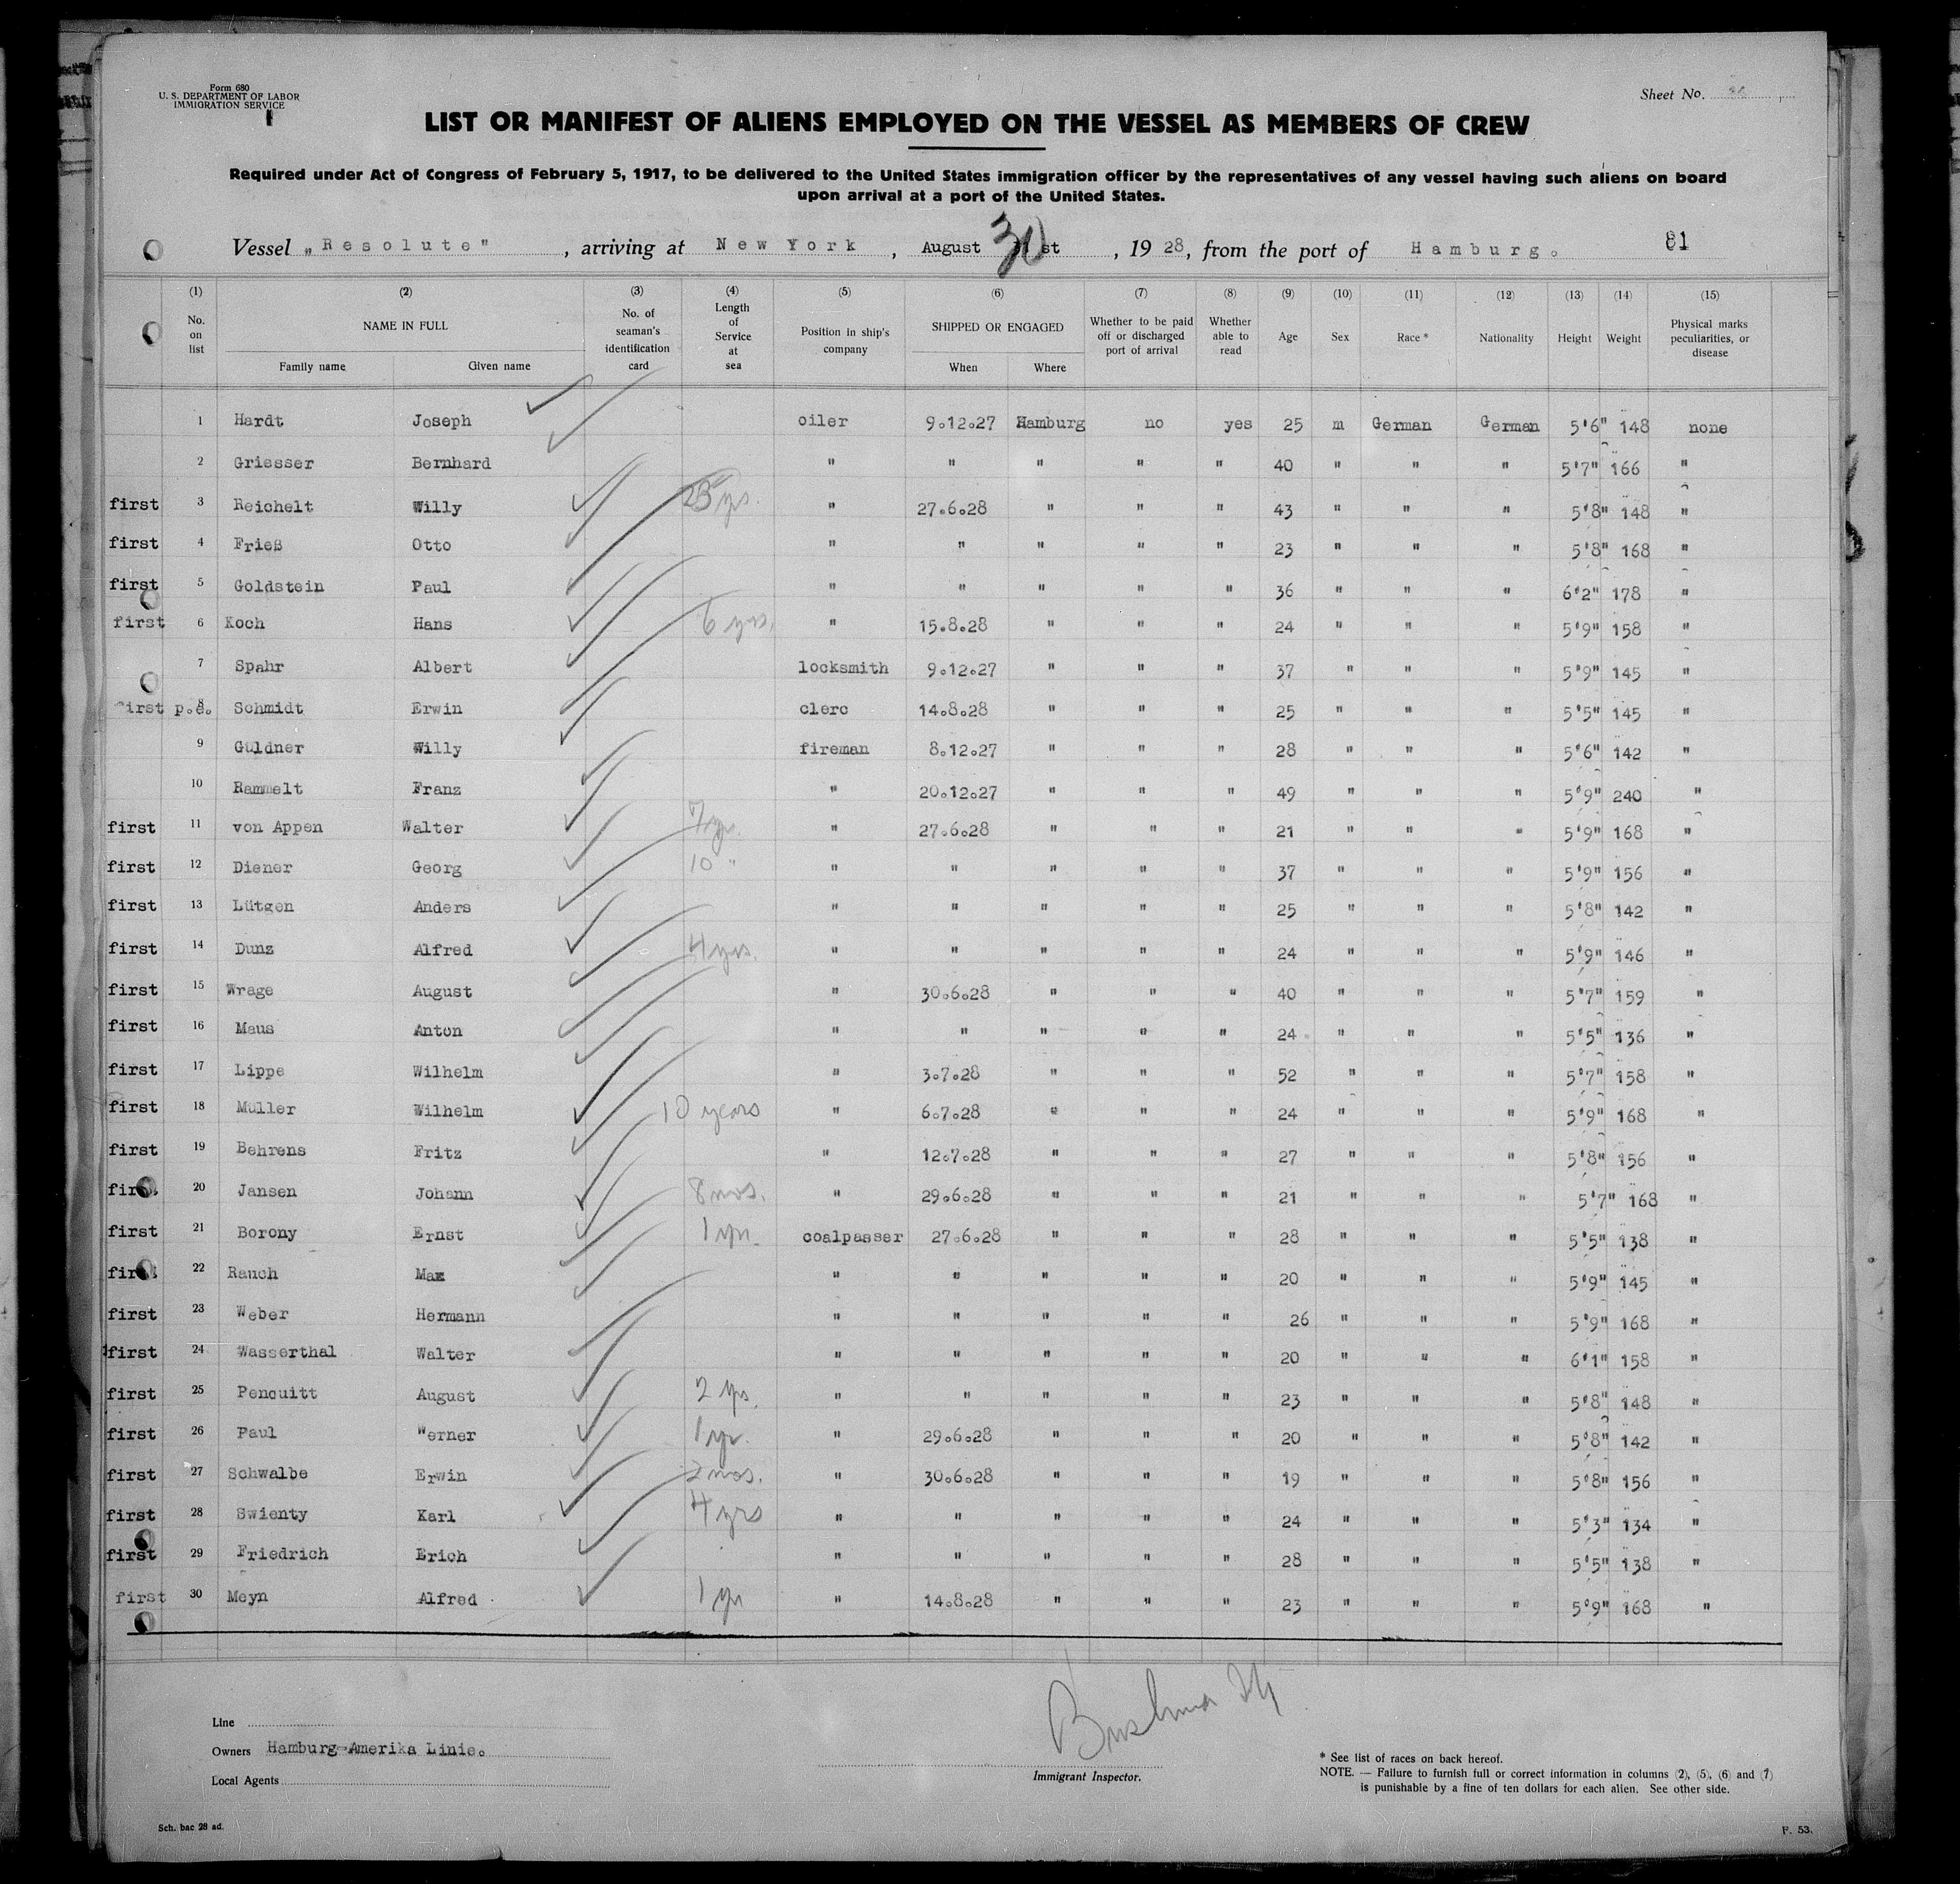 Form 680
U. S. DEPARTMENT OF LABOR
IMMIGRATION SERVICE
Sheet No.
LIST OR MANIFEST OF ALIENS EMPLOYED ON THE VESSEL AS MEMBERS OF CREW
Required under Act of Congress of February 5, 1917, to be delivered to the United States immigration officer by the representatives of any vessel having such aliens on board
upon arrival at a port of the United States.
Vessel „Resolute" , arriving at New York , August 30 st , 19 28, from the port of Hamburg. 81
(1) No. on list (2) NAME IN FULL Family name Given name (3) No. of seaman's identification card (4) Length of Service at sea (5) Position in ship's company (6) SHIPPED OR ENGAGED When Where (7) Whether to be paid off or discharged port of arrival (8) Whether able to read (9) Age (10) Sex (11) Race * (12) Nationality (13) Height (14) Weight (15) Physical marks peculiarities, or disease
1 Hardt Joseph oiler 9.12.27 Hamburg no yes 25 m German German 5'6" 148 none
2 Griesser Bernhard " " " " " 40 " " " 5'7" 166 "
first 3 Reichelt Willy 25 yrs. " 27.6.28 " " " 43 " " " 5'8" 148 "
first 4 Frieß Otto " " " " " 23 " " " 5'8" 168 "
first 5 Goldstein Paul " " " " " 36 " " " 6'2" 178 "
first 6 Koch Hans 6 yrs. " 15.8.28 " " " 24 " " " 5'9" 158 "
7 Spahr Albert locksmith 9.12.27 " " " 37 " " " 5'9" 145 "
first p.e. 8 Schmidt Erwin clerc 14.8.28 " " " 25 " " " 5'5" 145 "
9 Güldner Willy fireman 8.12.27 " " " 28 " " " 5'6" 142 "
10 Rammelt Franz " 20.12.27 " " " 49 " " " 5'9" 240 "
first 11 von Appen Walter 7 yr. " 27.6.28 " " " 21 " " " 5'9" 168 "
first 12 Diener Georg 10 " " " " " " 37 " " " 5'9" 156 "
first 13 Lütgen Anders " " " " " 25 " " " 5'8" 142 "
first 14 Dunz Alfred 4 yrs. " " " " " 24 " " " 5'9" 146 "
first 15 Wrage August " 30.6.28 " " " 40 " " " 5'7" 159 "
first 16 Maus Anton " " " " " 24 " " " 5'5" 136 "
first 17 Lippe Wilhelm " 3.7.28 " " " 52 " " " 5'7" 158 "
first 18 Müller Wilhelm 10 years " 6.7.28 " " " 24 " " " 5'9" 168 "
first 19 Behrens Fritz " 12.7.28 " " " 27 " " " 5'8" 156 "
first 20 Jansen Johann 8 mos. " 29.6.28 " " " 21 " " " 5'7" 168 "
first 21 Borony Ernst 1 yr. coalpasser 27.6.28 " " " 28 " " " 5'5" 138 "
first 22 Rauch Max " " " " " 20 " " " 5'9" 145 "
first 23 Weber Hermann " " " " " 26 " " " 5'9" 168 "
first 24 Wasserthal Walter " " " " " 20 " " " 6'1" 158 "
first 25 Pencuitt August 2 yrs. " " " " " 23 " " " 5'8" 148 "
first 26 Paul Werner 1 yr. " 29.6.28 " " " 20 " " " 5'8" 142 "
first 27 Schwalbe Erwin 2 mos. " 30.6.28 " " " 19 " " " 5'8" 156 "
first 28 Swienty Karl 4 yrs " " " " " 24 " " " 5'3" 134 "
first 29 Friedrich Erich " " " " " 28 " " " 5'5" 138 "
first 30 Meyn Alfred 1 yr " 14.8.28 " " " 23 " " " 5'9" 168 "
Line
Owners Hamburg-Amerika Linie.
Local Agents
Immigrant Inspector.
* See list of races on back hereof.
NOTE. — Failure to furnish full or correct information in columns (2), (5), (6) and (7)
is punishable by a fine of ten dollars for each alien. See other side.
Sch. bac 28 ad.
F. 53.